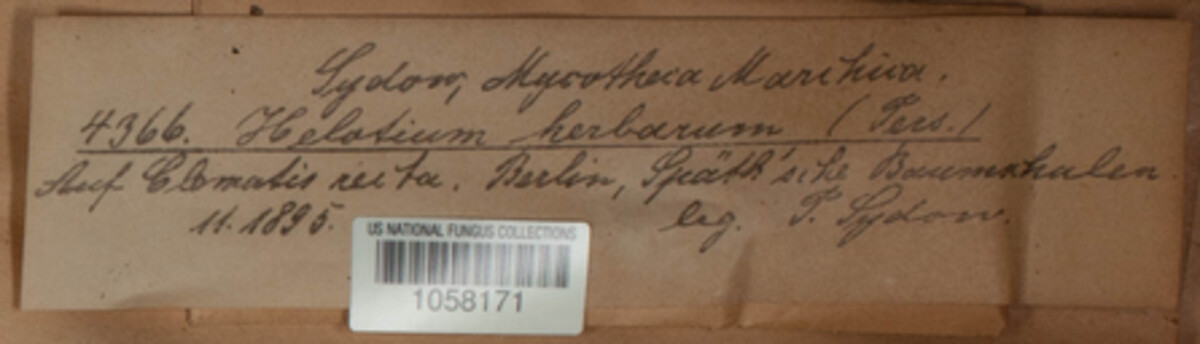 Sydow, Mycotheca Marchica.
4366. Helotium herbarum (Pers.)
Auf Clematis recta. Berlin, Späth'sche Baumschulen.
11. 1895. leg. P. Sydow.
US NATIONAL FUNGUS COLLECTIONS
1058171